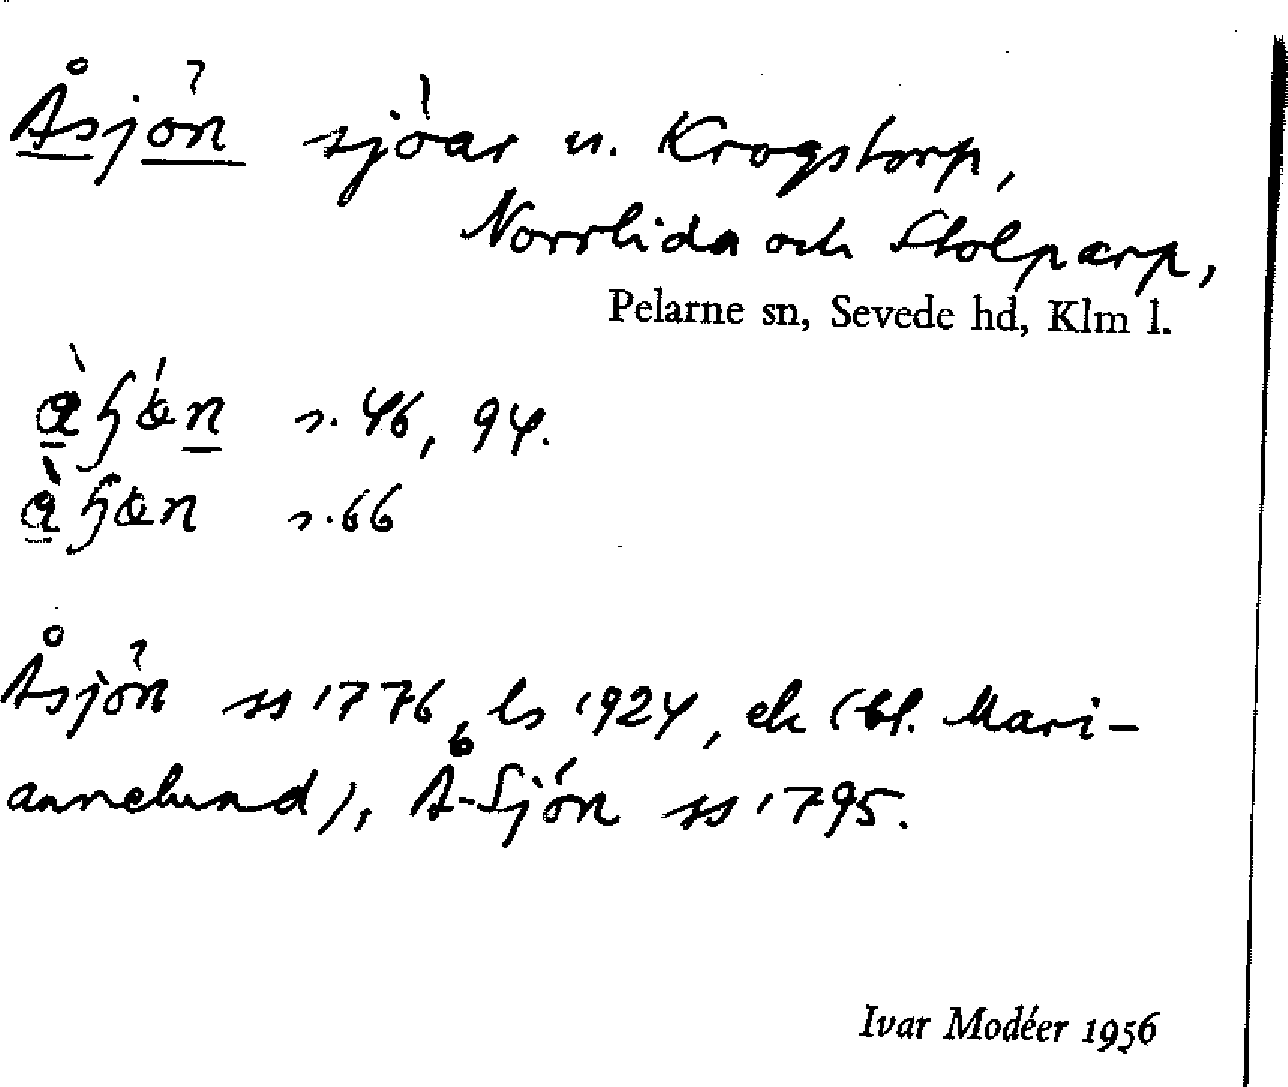 Åsjön sjöar u. Krogstorp,
Norrhida och Stolparp,
Pelarne sn, Sevede hd, Klm l.
s. 46, 94.
s. 66
Åsjön ss 1776, ls 1924, ek (bl. Mari-
annelund), Å-Sjön ss 1795.
Ivar Modéer 1956